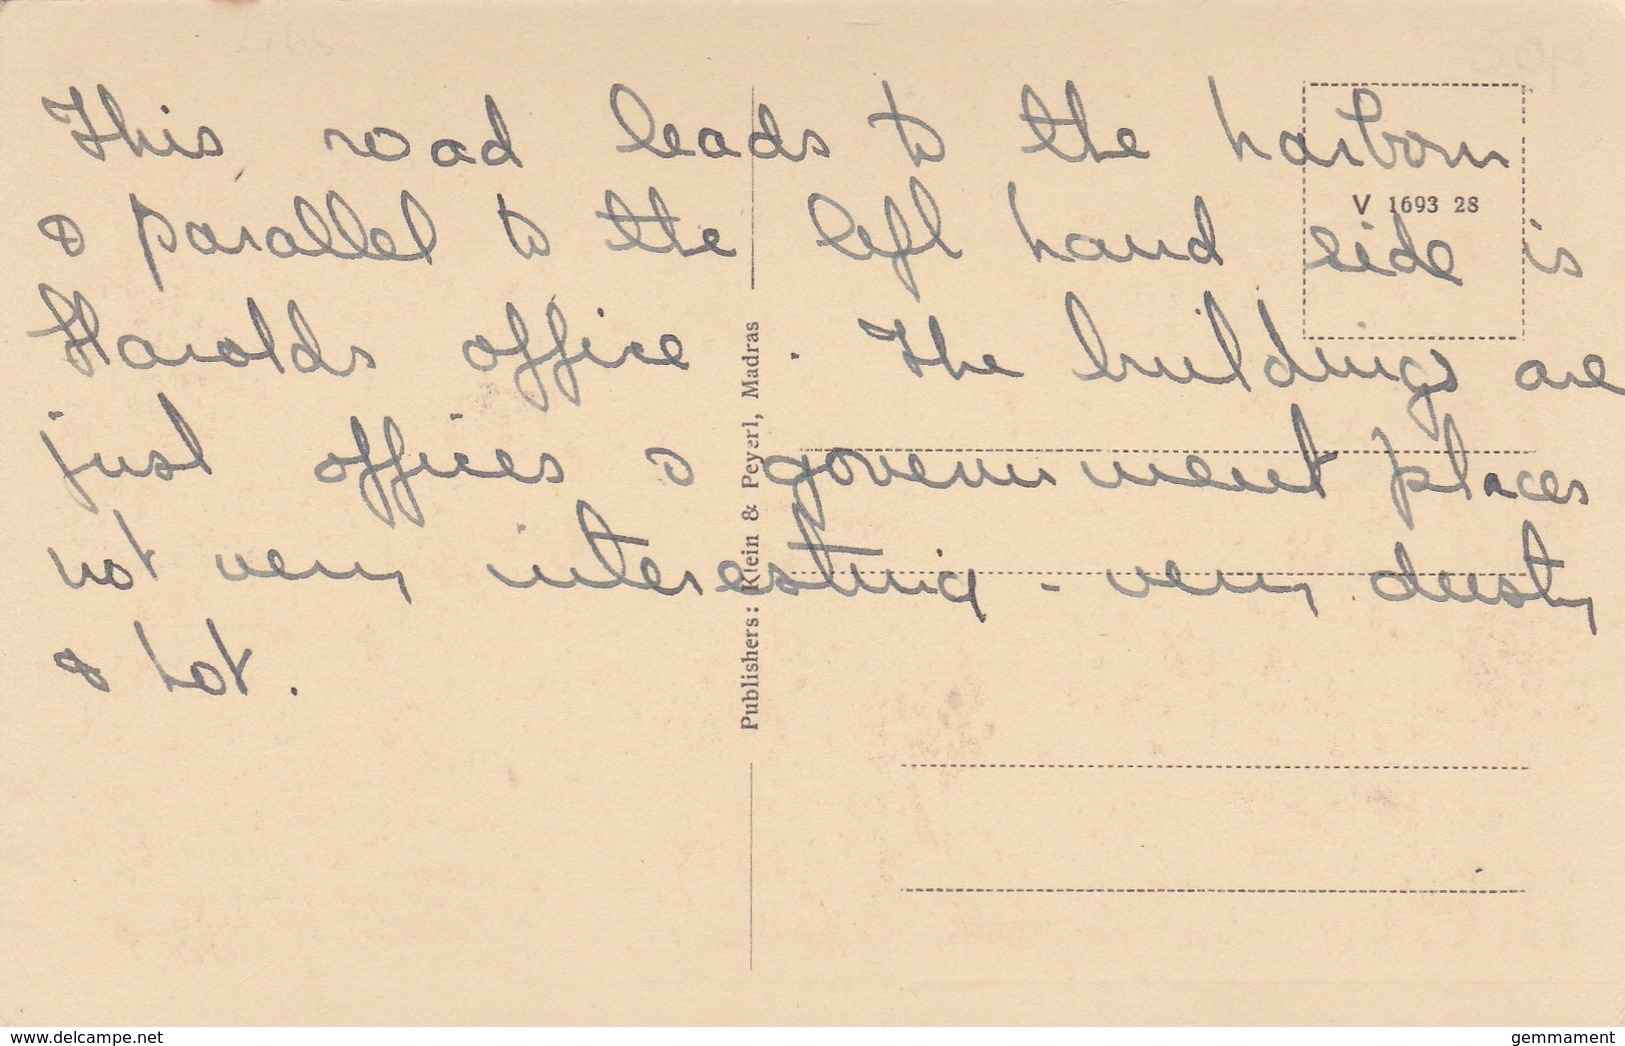 This road leads to the harbour
& parallel to the left hand side is
Harolds office. The buildings are
just offices & government places
not very interesting - very dusty
& hot.
V 1693 28
Publishers: Klein & Peyerl, Madras
www.delcampe.net
gemmament